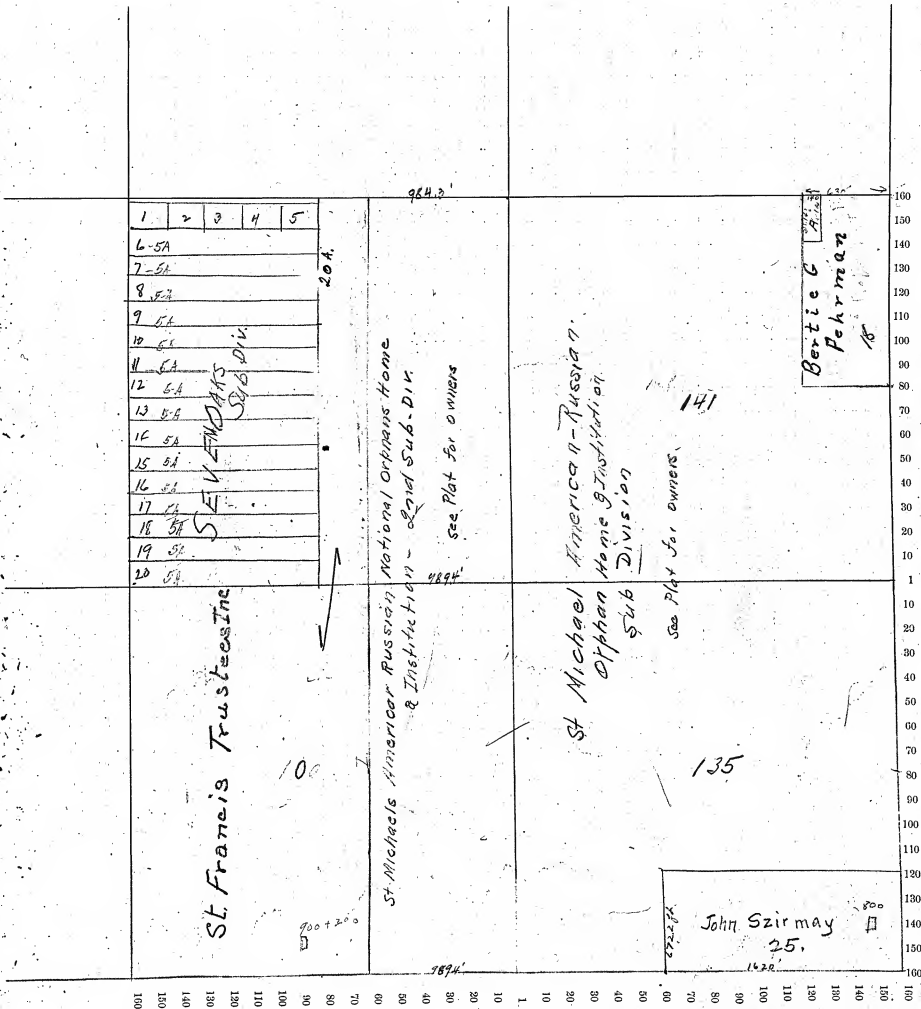 984.3'
1 2 3 4 5
6-5A
7-5A
8 5A
9 5A
10 5A
11 5A
12 5A
13 5A
14 5A
15 5A
16 5A
17 5A
18 5A
19 5A
20 5A
SEVENOAKS
Sub Div.
20 A.
St. Michaels American Russian National Orphans Home
& Institution - 2nd Sub-Div.
see Plat for owners
St Michael American-Russian
Orphan Home & Institution
Sub
Division
see Plat for owners
141
Bertie G
Pehrman
18
989.4'
St. Francis Trustees Inc
100
900+200
135
John Szirmay
25.
800
1620'
989.4'
160
150
140
130
120
110
100
90
80
70
60
50
40
30
20
10
1
10
20
30
40
50
60
70
80
90
100
110
120
130
140
150
160
160 150 140 130 120 110 100 90 80 70 60 50 40 30 20 10 1 10 20 30 40 50 60 70 80 90 100 110 120 130 140 150 160